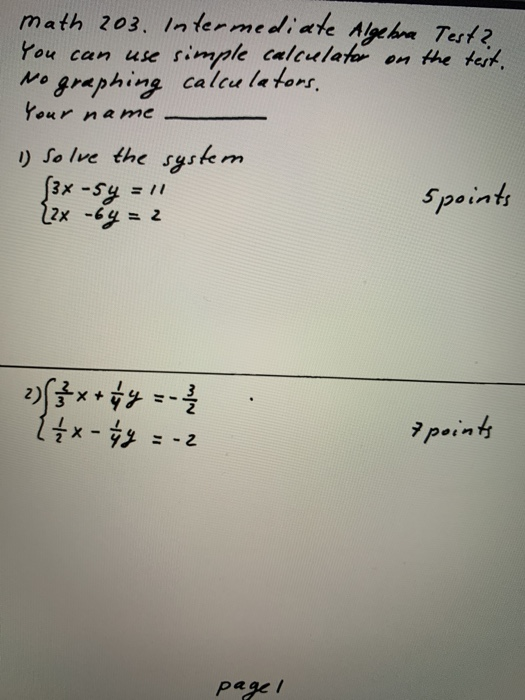 Math 203. Intermediate Algebra Test 2
You can use simple calculator on the test.
No graphing calculators.
Your name ________
1) Solve the system
{3x - 5y = 11
{2x - 6y = 2
5 points
2) {2/3 x + 1/4 y = -3/2
{1/2 x - 1/4 y = -2
7 points
page 1